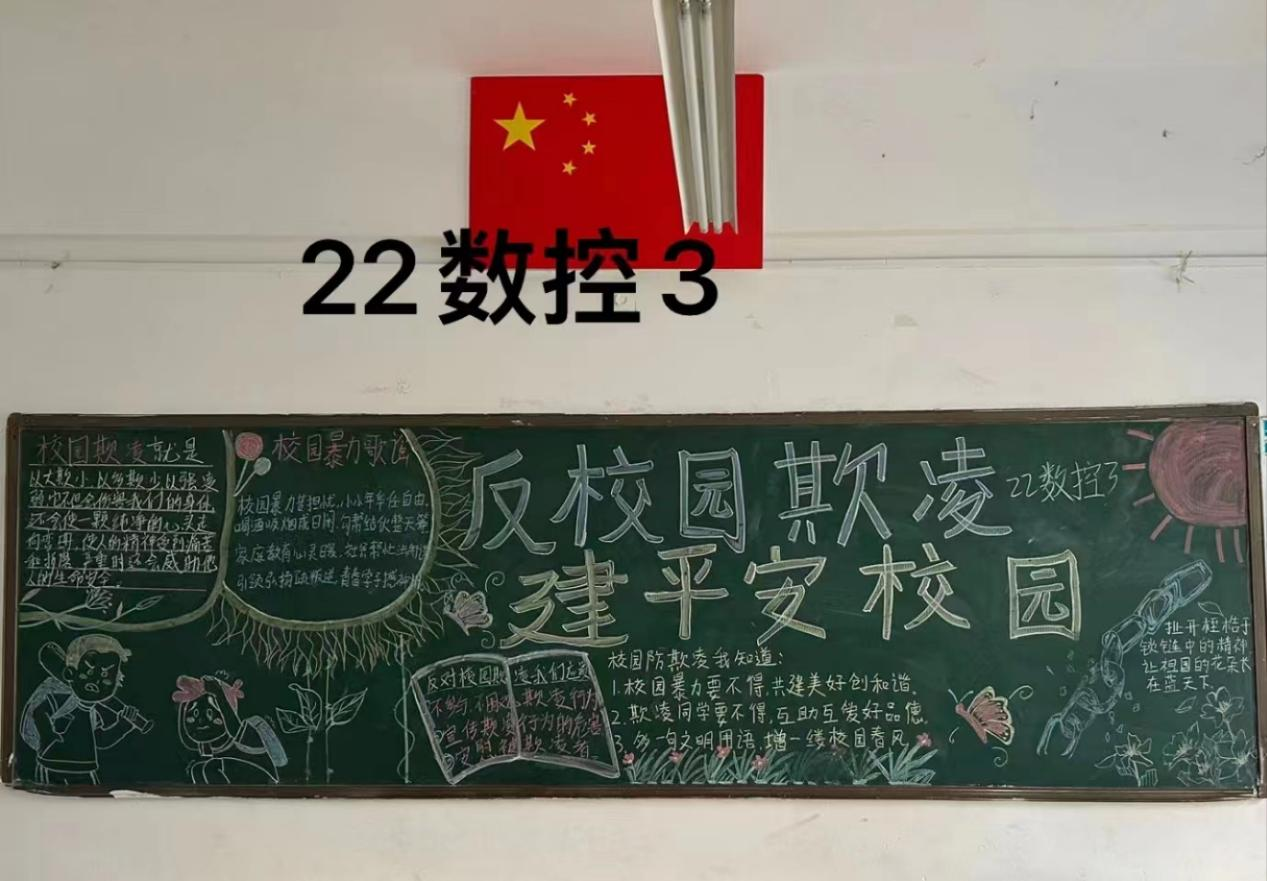 22数控3
校园欺凌就是
以大欺小、以多欺少、以强凌
弱它不但会伤害我们的身体
还会使一颗纯净的心灵走
向
使人的精神受到痛苦
严重的还会威胁他
人的生命安全。
校园暴力歌谣
校园暴力甚担忧,小小年学任自由
喝酒吸烟成日闲,勾帮结伙整天
家庭教育心灵暖,
反校园欺凌
22数控3
建平安校园
反对校园欺凌我们应
欺凌行为
宣传欺凌行为的危害
欺凌者
校园防欺凌我知道:
1.校园暴力要不得,共建美好创和谐。
2.欺凌同学要不得,互助互爱好品德。
3.多一句文明用语,增一缕校园春风
扯开桎梏于
锁链中的精神
让祖国的花朵长
在蓝天下